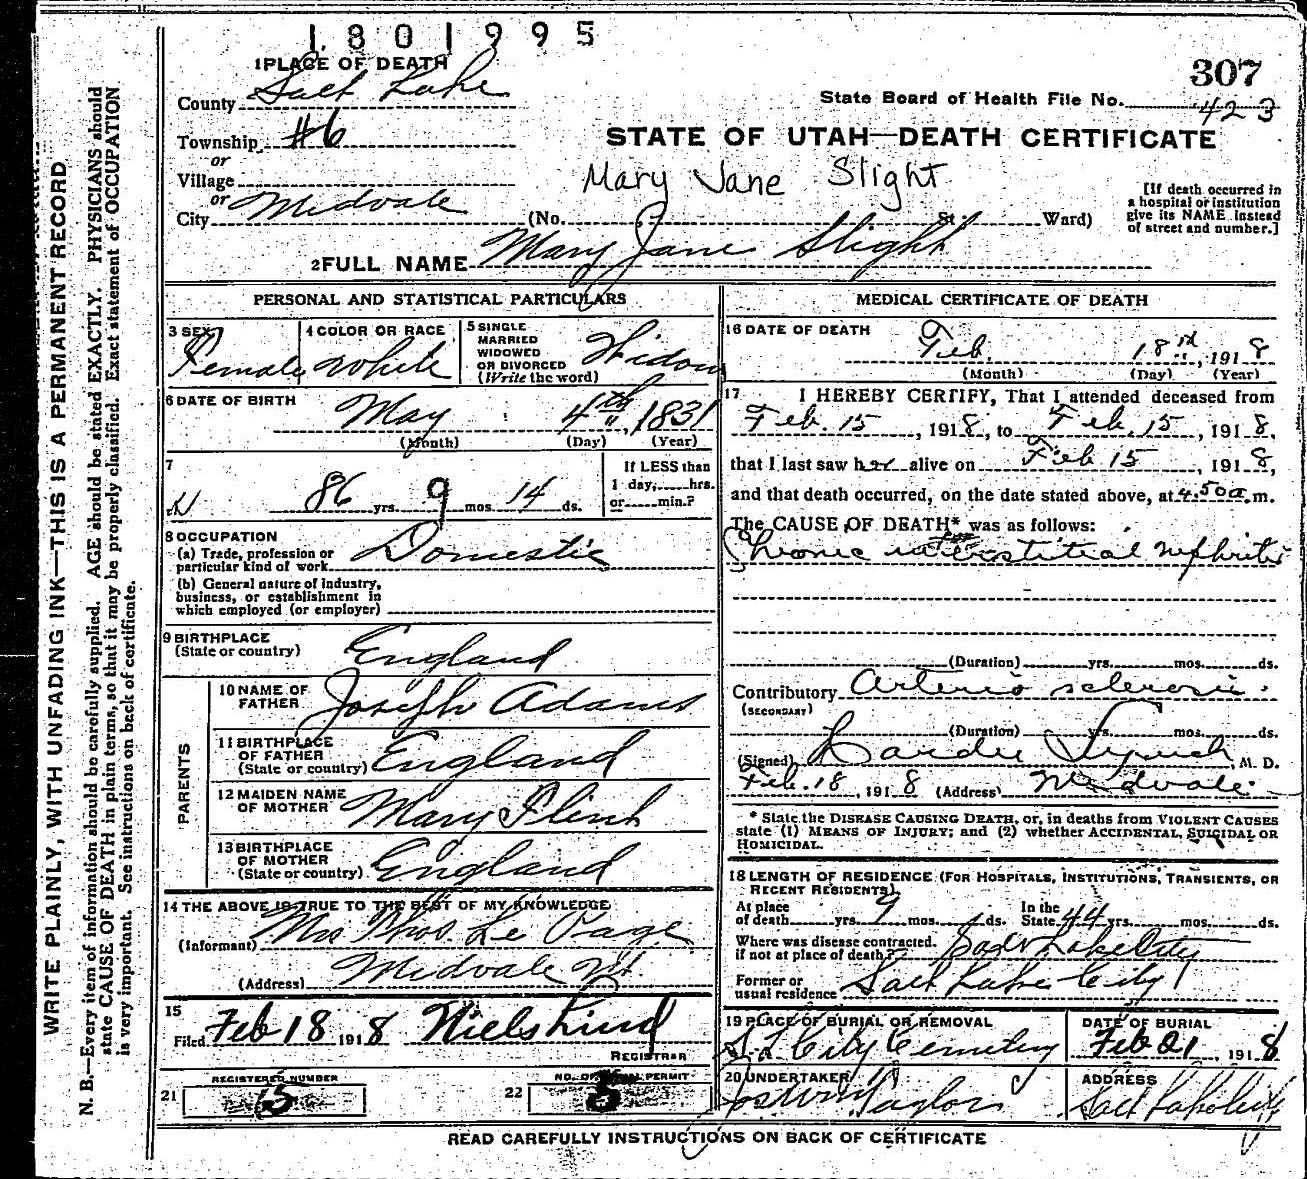 1801995
1 PLACE OF DEATH
307
County Salt Lake
State Board of Health File No. 423
Township #6
STATE OF UTAH—DEATH CERTIFICATE
or
Village
Mary Jane Slight
[If death occurred in
a hospital or institution
give its NAME instead
of street and number.]
or
City Midvale (No. St.; Ward)
2 FULL NAME Mary Jane Slight
PERSONAL AND STATISTICAL PARTICULARS
3 SEX Female
4 COLOR OR RACE White
5 SINGLE
MARRIED
WIDOWED
OR DIVORCED
(Write the word) Widow
6 DATE OF BIRTH May 4th, 1831
(Month) (Day) (Year)
7
86 yrs. 9 mos. 14 ds.
If LESS than
1 day, hrs.
or min.?
8 OCCUPATION
(a) Trade, profession or
particular kind of work Domestic
(b) General nature of industry,
business, or establishment in
which employed (or employer)
9 BIRTHPLACE
(State or country) England
PARENTS
10 NAME OF
FATHER Joseph Adams
11 BIRTHPLACE
OF FATHER
(State or country) England
12 MAIDEN NAME
OF MOTHER Mary Flink
13 BIRTHPLACE
OF MOTHER
(State or country) England
14 THE ABOVE IS TRUE TO THE BEST OF MY KNOWLEDGE
(Informant) Mrs Thos. Le Page
(Address) Midvale Ut.
15
Filed Feb 18 1918 Niels Lind
REGISTRAR
21
REGISTERED NUMBER
22
NO. OF BURIAL PERMIT
MEDICAL CERTIFICATE OF DEATH
16 DATE OF DEATH
Feb. 18th, 1918
(Month) (Day) (Year)
17 I HEREBY CERTIFY, That I attended deceased from
Feb. 15, 1918, to Feb. 15, 1918,
that I last saw her alive on Feb 15, 1918,
and that death occurred, on the date stated above, at 4.50a m.
The CAUSE OF DEATH* was as follows:
Chronic interstitial nephritis
(Duration) yrs. mos. ds.
Contributory Arterio sclerosis.
(SECONDARY)
(Duration) yrs. mos. ds.
(Signed) Lynch, M. D.
Feb. 18, 1918 (Address) Midvale.
* State the DISEASE CAUSING DEATH, or, in deaths from VIOLENT CAUSES
state (1) MEANS OF INJURY; and (2) whether ACCIDENTAL, SUICIDAL OR
HOMICIDAL.
18 LENGTH OF RESIDENCE (FOR HOSPITALS, INSTITUTIONS, TRANSIENTS, OR
RECENT RESIDENTS).
At place
of death yrs. mos. ds. In the
State 44 yrs. mos. ds.
Where was disease contracted,
if not at place of death? Salt Lake City
Former or
usual residence Salt Lake City
19 PLACE OF BURIAL OR REMOVAL
S. L City Cemetery
DATE OF BURIAL
Feb 21, 1918
20 UNDERTAKER
Jos Wm Taylor
ADDRESS
Salt Lake City
READ CAREFULLY INSTRUCTIONS ON BACK OF CERTIFICATE
WRITE PLAINLY, WITH UNFADING INK—THIS IS A PERMANENT RECORD
N. B.—Every item of information should be carefully supplied. AGE should be stated EXACTLY. PHYSICIANS should
state CAUSE OF DEATH in plain terms, so that it may be properly classified. Exact statement of OCCUPATION
is very important. See instructions on back of certificate.